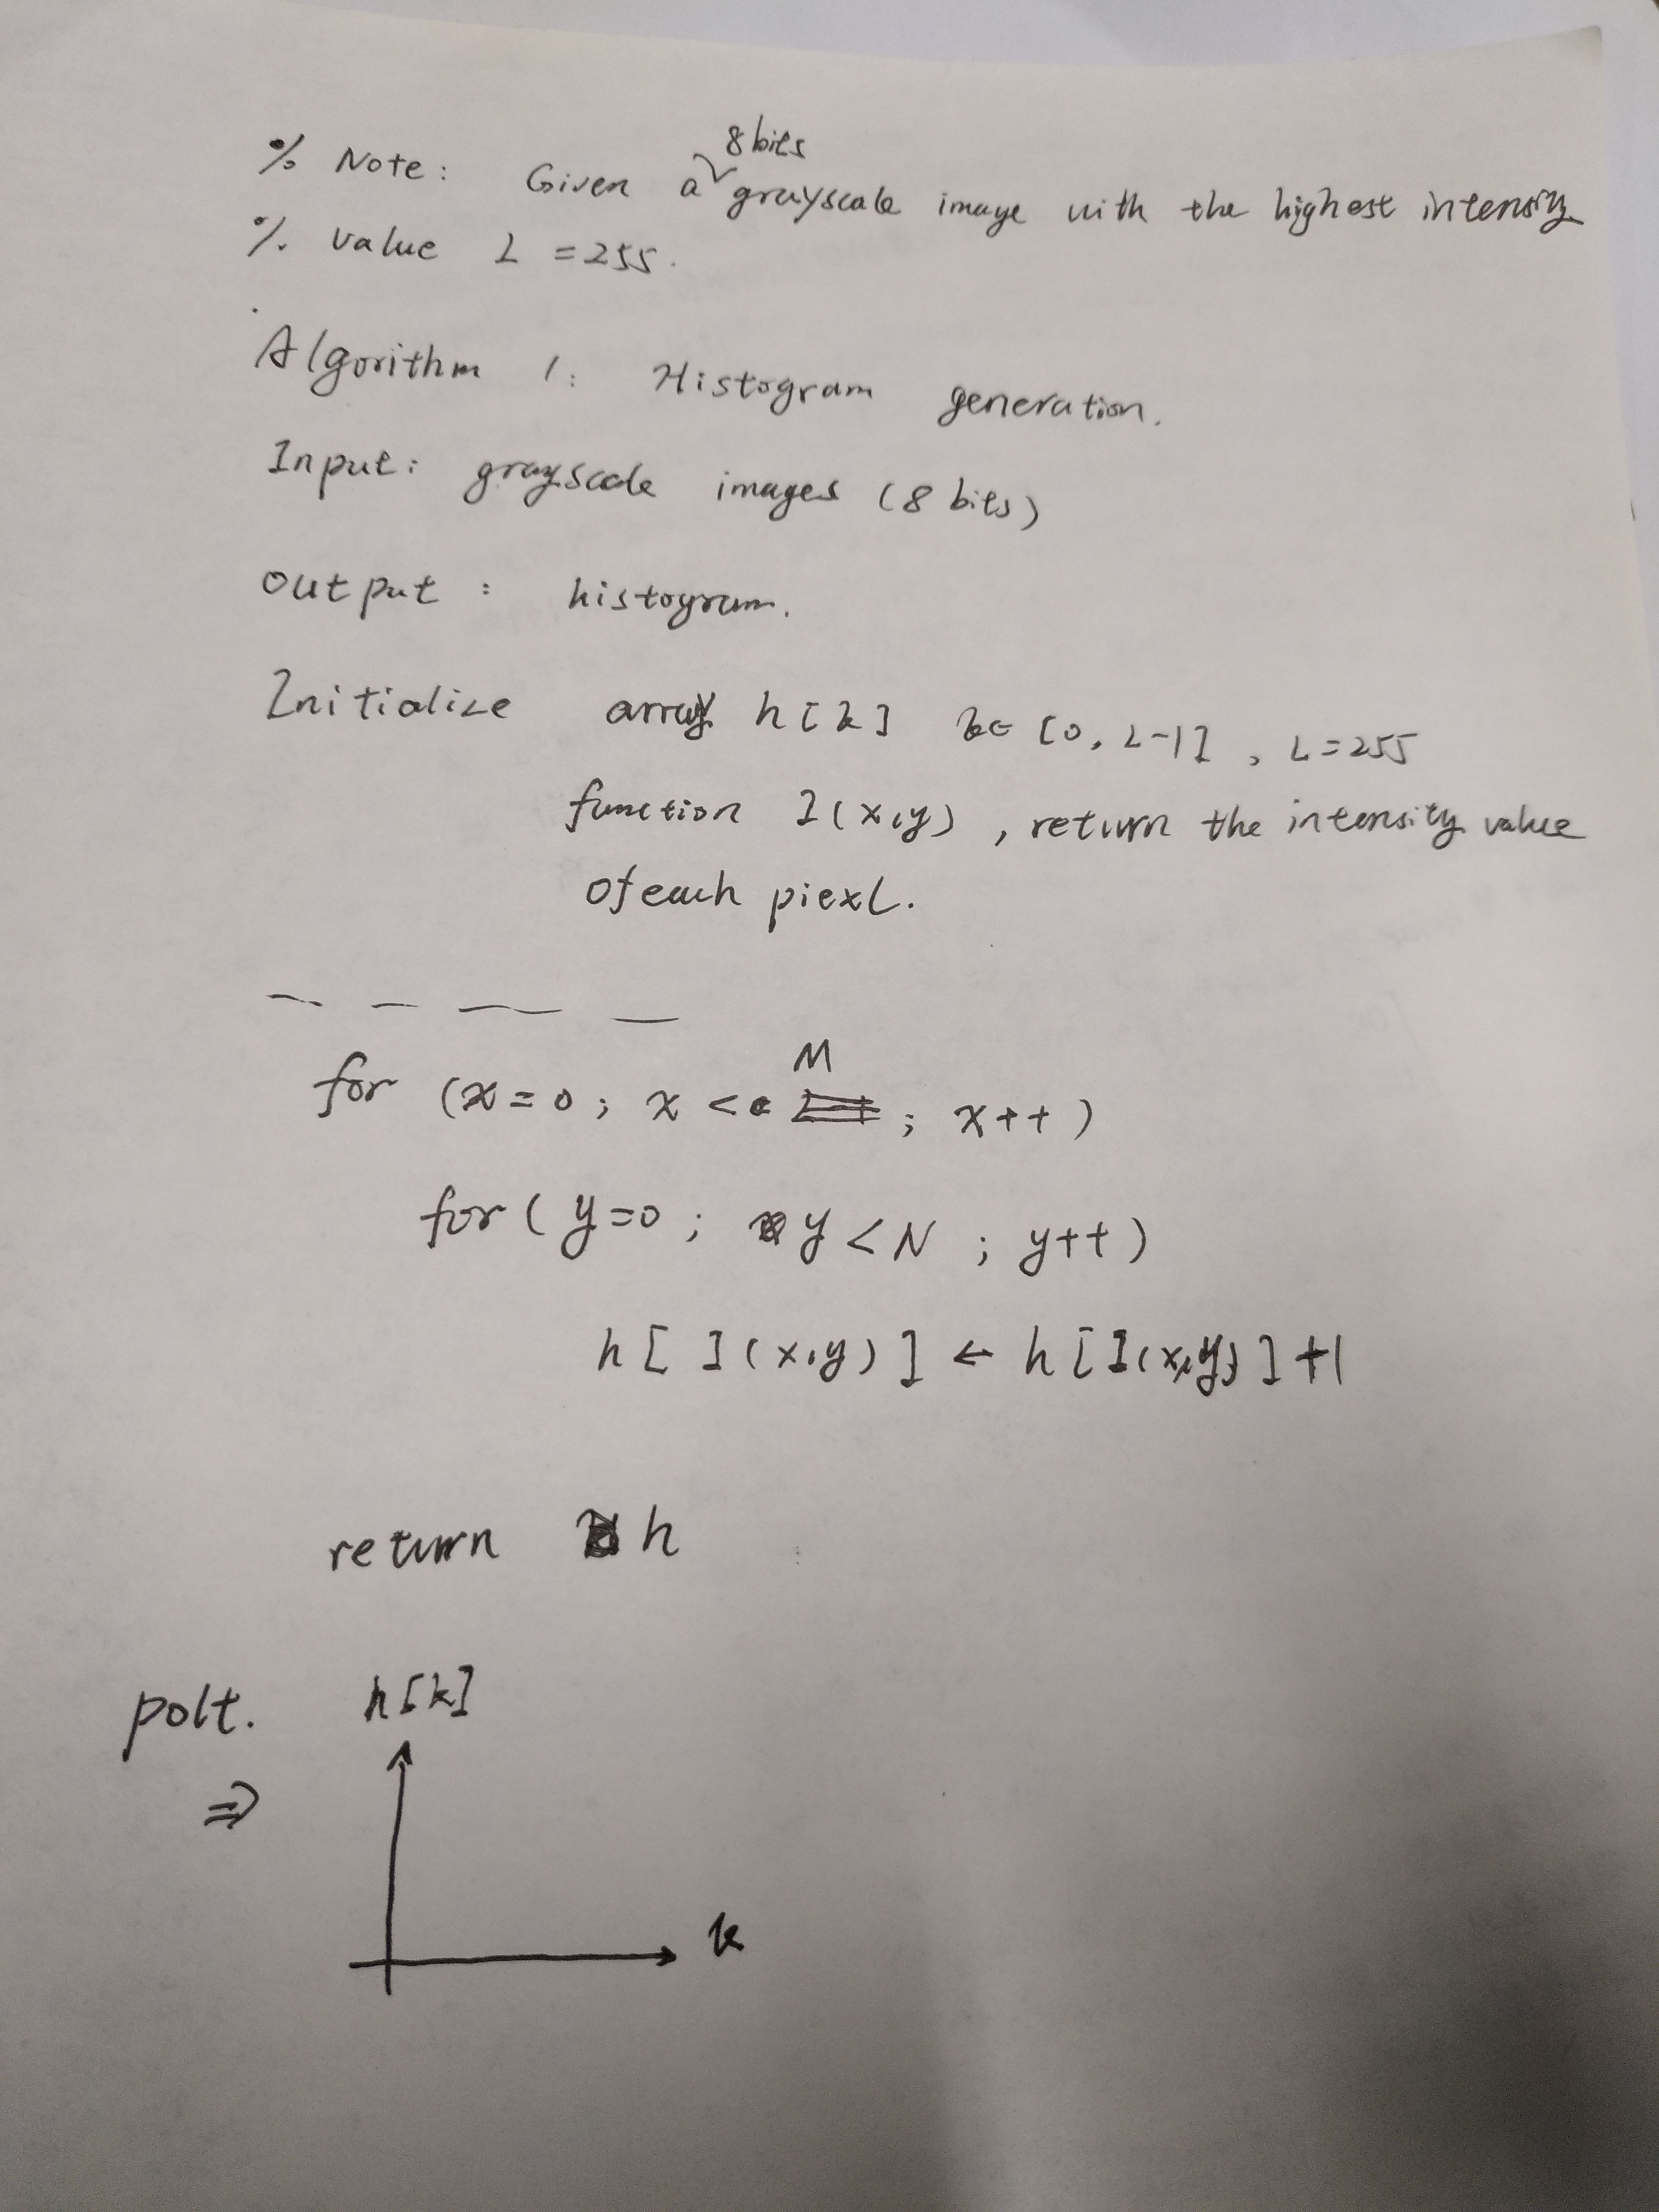 % Note: Given a 8 bits grayscale image with the highest intensity
% value L = 255.
Algorithm 1: Histogram generation.
Input: grayscale images (8 bits)
Output: histogram.
Initialize array h[k] k∈[0, L-1], L=255
function I(x,y), return the intensity value
of each piexl.
for (x=0; x< M; x++)
for (y=0; y<N; y++)
h[I(x,y)] ← h[I(x,y)]+1
return h
polt. h[k]
⇒
k